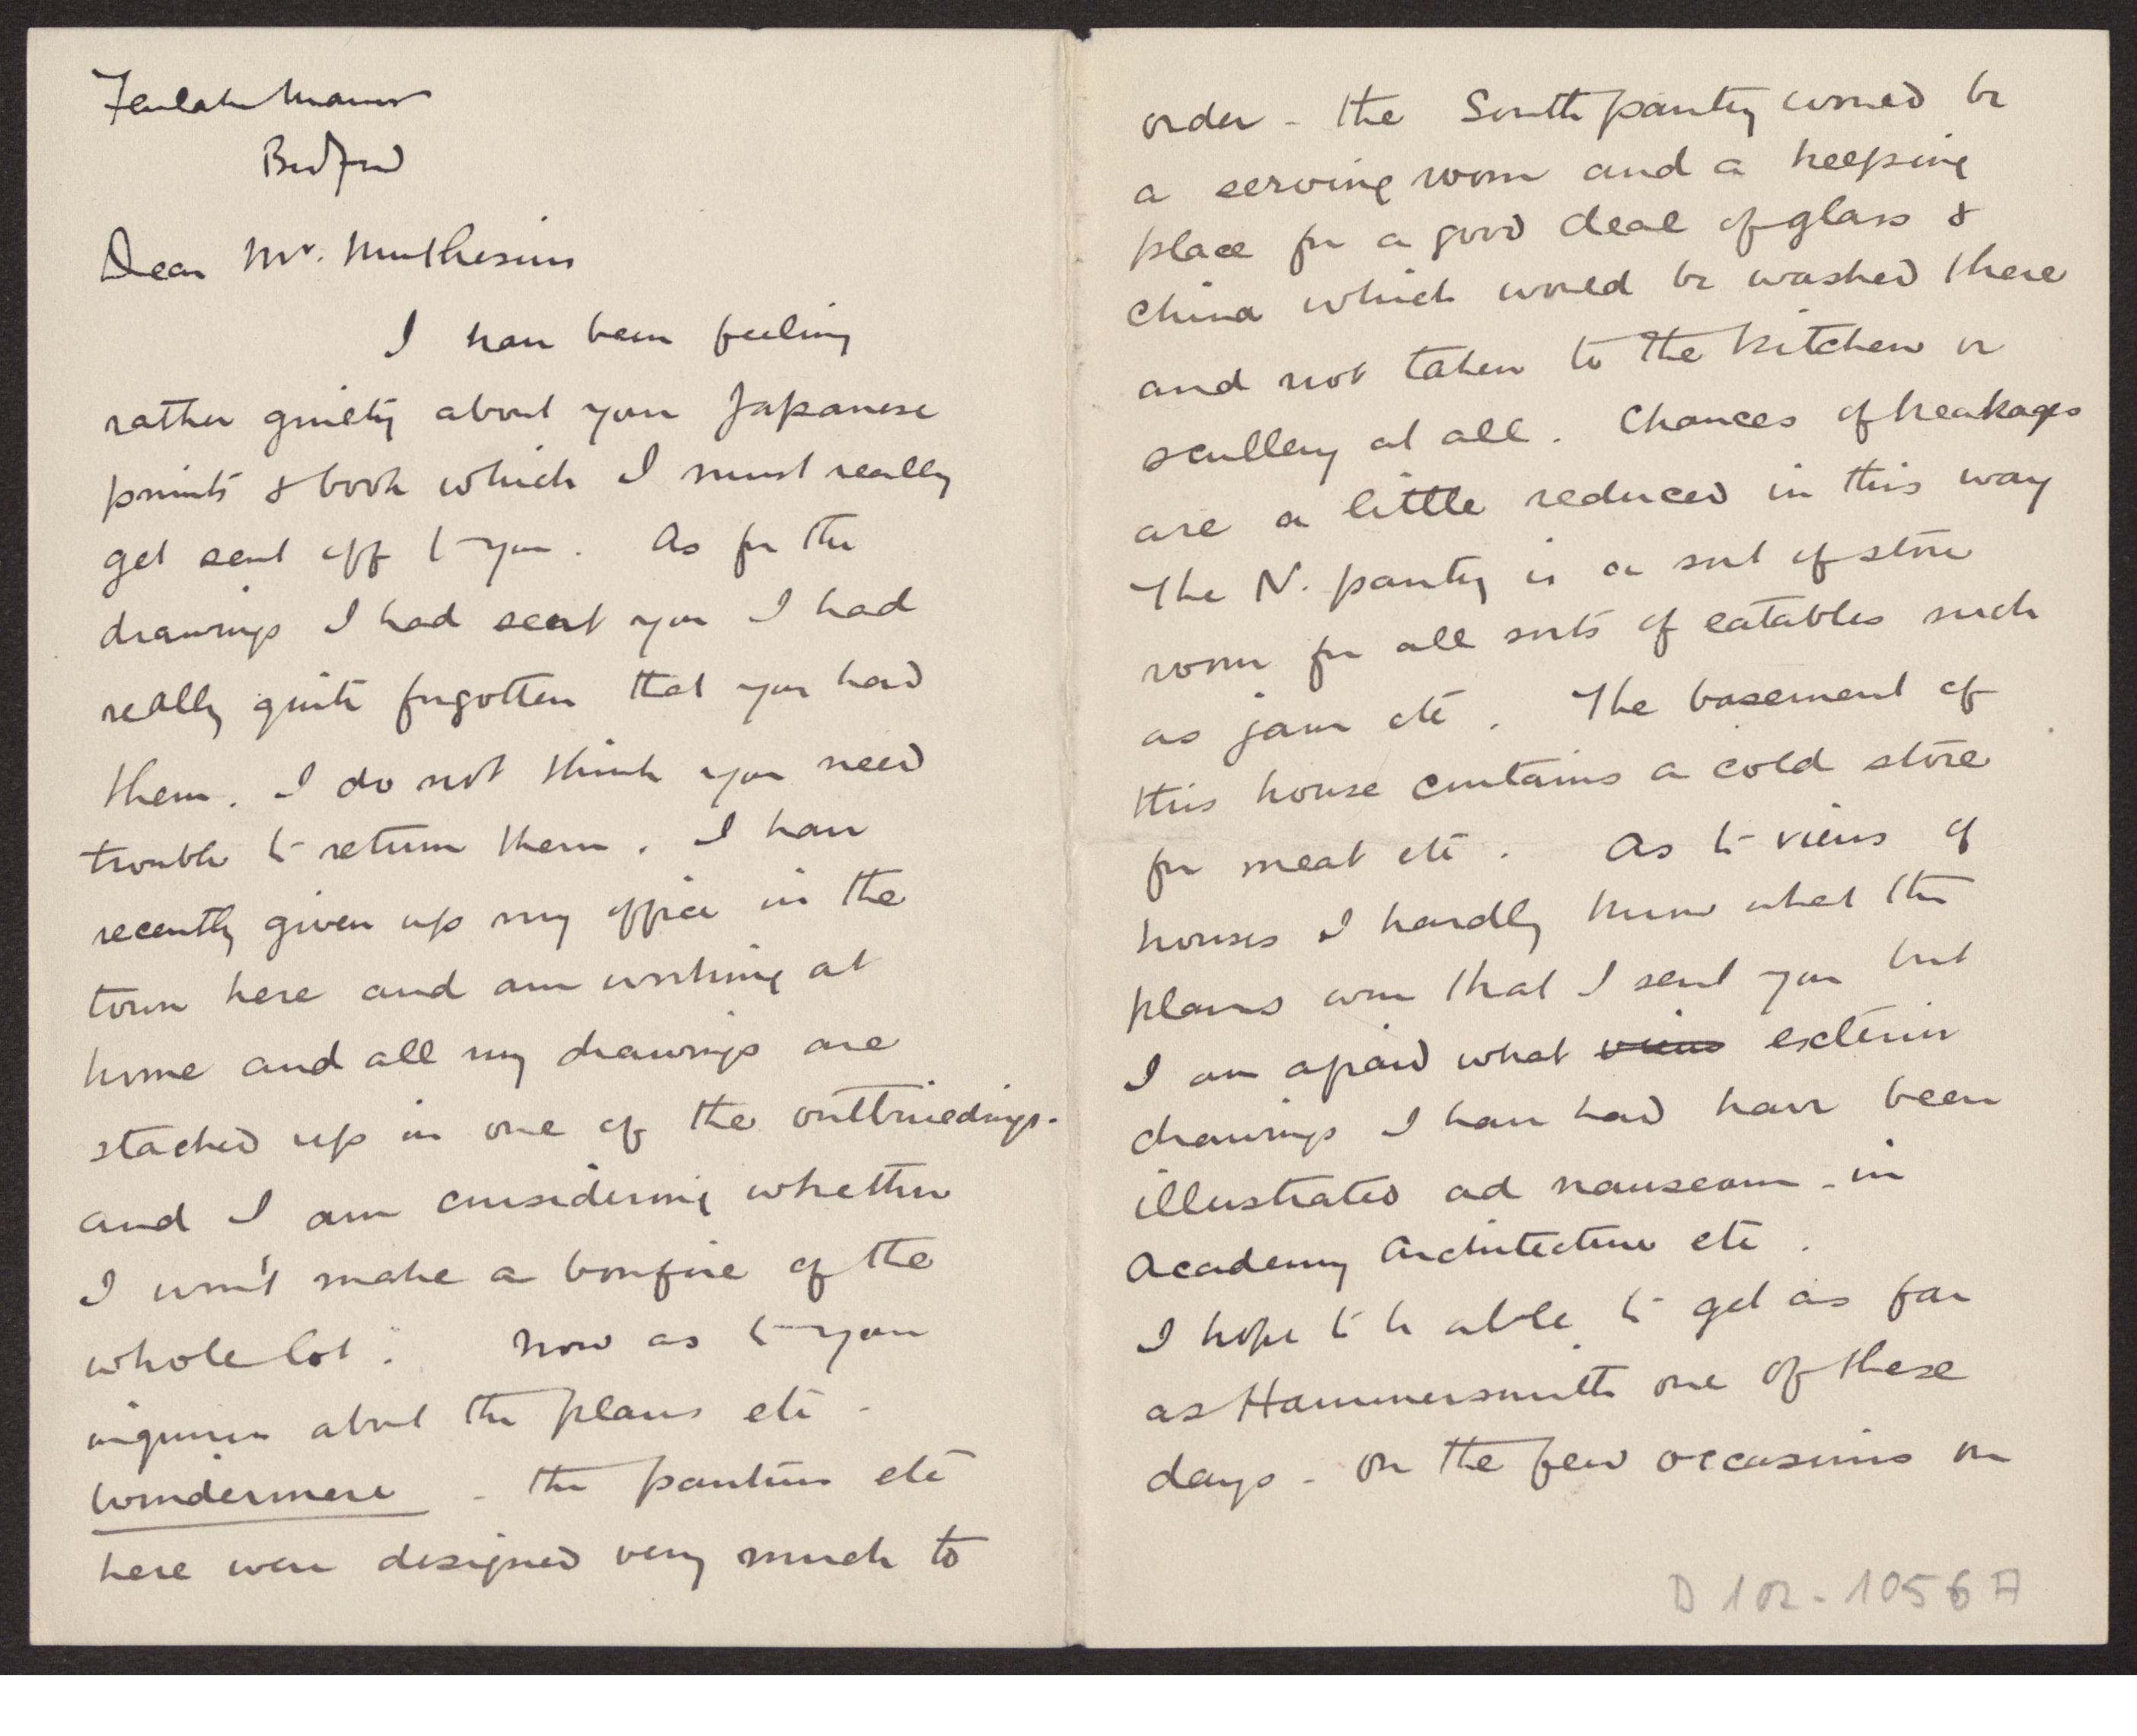 Fenlake Manor
Bedford
Dear Mr. Muthesius
I have been feeling
rather guilty about your Japanese
prints & book which I must really
get sent off to you. As for the
drawings I had sent you I had
really quite forgotten that you had
them. I do not think you need
trouble to return them. I have
recently given up my office in the
town here and am working at
home and all my drawings are
stacked up in one of the outbuildings.
and I am considering whether
I won't make a bonfire of the
whole lot. Now as to your
inquiries about the plans etc -
Windermere - the pantries etc
here were designed very much to
order - the South pantry would be
a serving room and a keeping
place for a good deal of glass &
china which would be washed there
and not taken to the kitchen or
scullery at all. Chances of breakages
are a little reduced in this way
The N. pantry is a sort of store
room for all sorts of eatables such
as jam etc. The basement of
this house contains a cold store
for meat etc. As to views of
houses I hardly know what the
plans were that I sent you but
I am afraid what views exterior
drawings I have had have been
illustrated ad nauseam - in
Academy Architecture etc.
I hope to be able to get as far
as Hammersmith one of these
days - on the few occasions on
D 102-1056 A